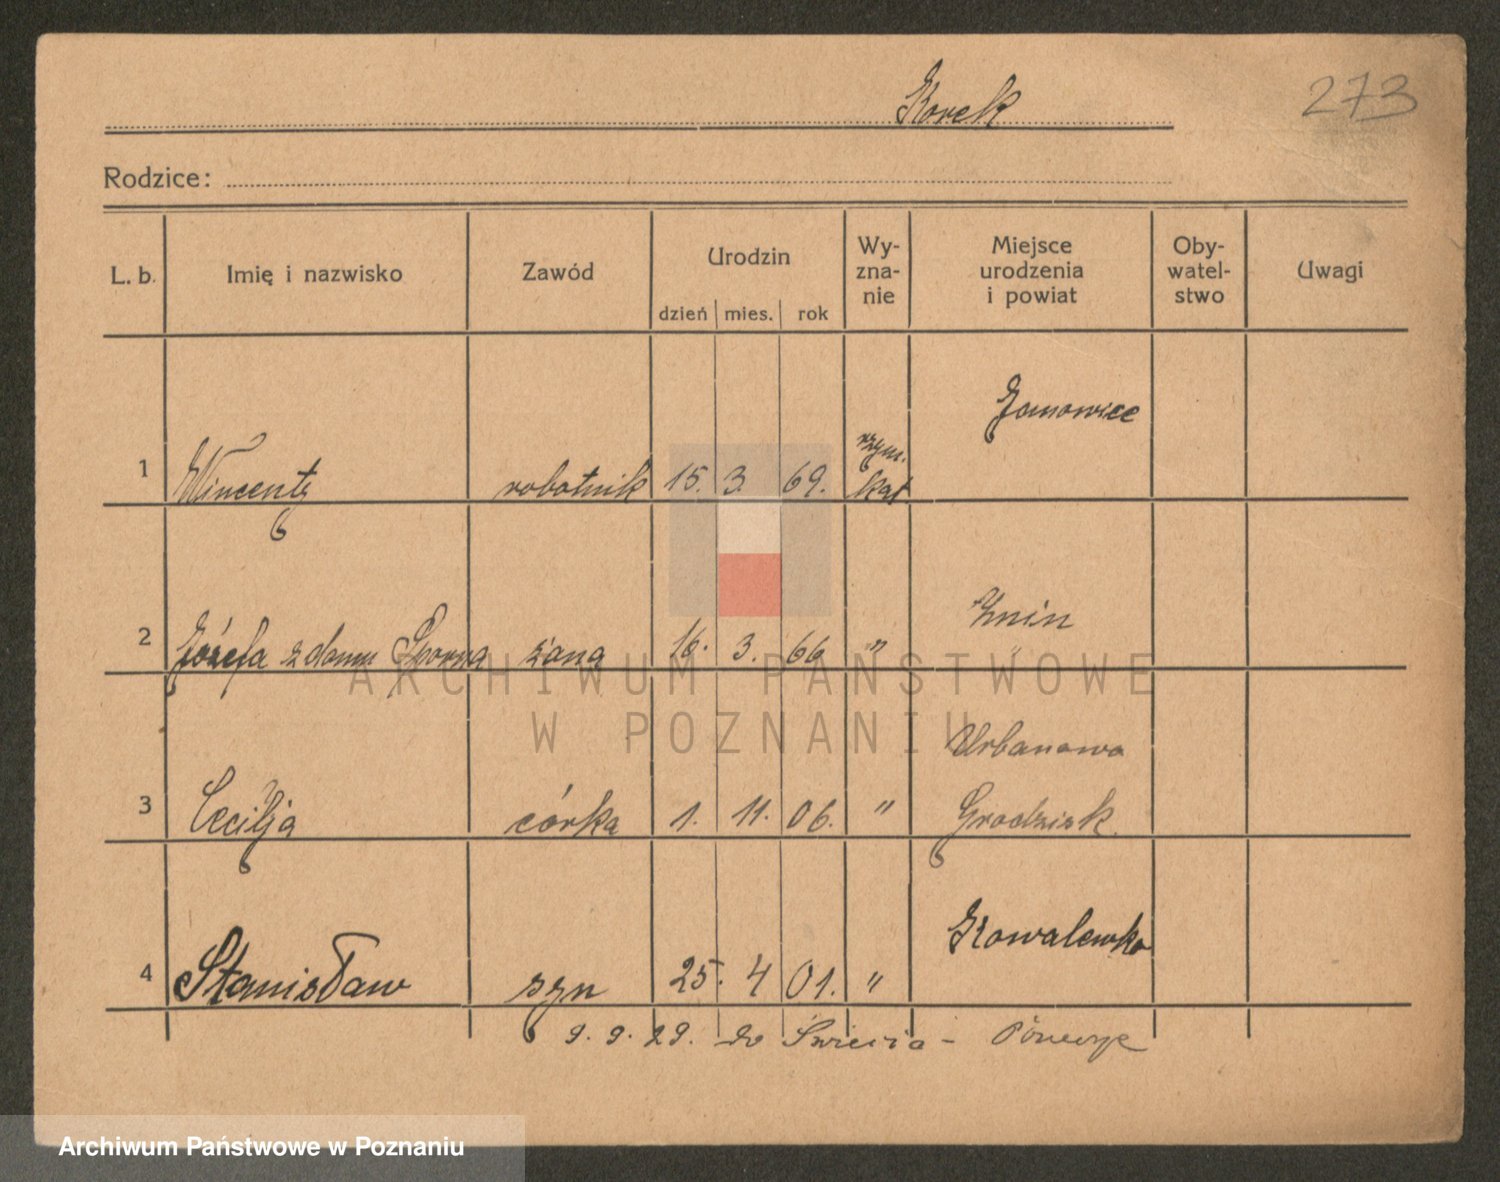 Korek
273
Rodzice:
L. b. Imię i nazwisko Zawód Urodzin dzień mies. rok Wy-zna-nie Miejsce urodzenia i powiat Oby-watel-stwo Uwagi
Janowice
1 Wincenty robotnik 15. 3. 69. rzym. kat
Żnin
2 Józefa z domu Sporna żona 16. 3. 66 " "
Urbanowo
3 Cecilja córka 1. 11. 06. " Grodzisk.
Kowalewko
4 Stanisław syn 25. 4 01. "
9. 9. 29. do Świecia -
ARCHIWUM PAŃSTWOWE
W POZNANIU
Archiwum Państwowe w Poznaniu